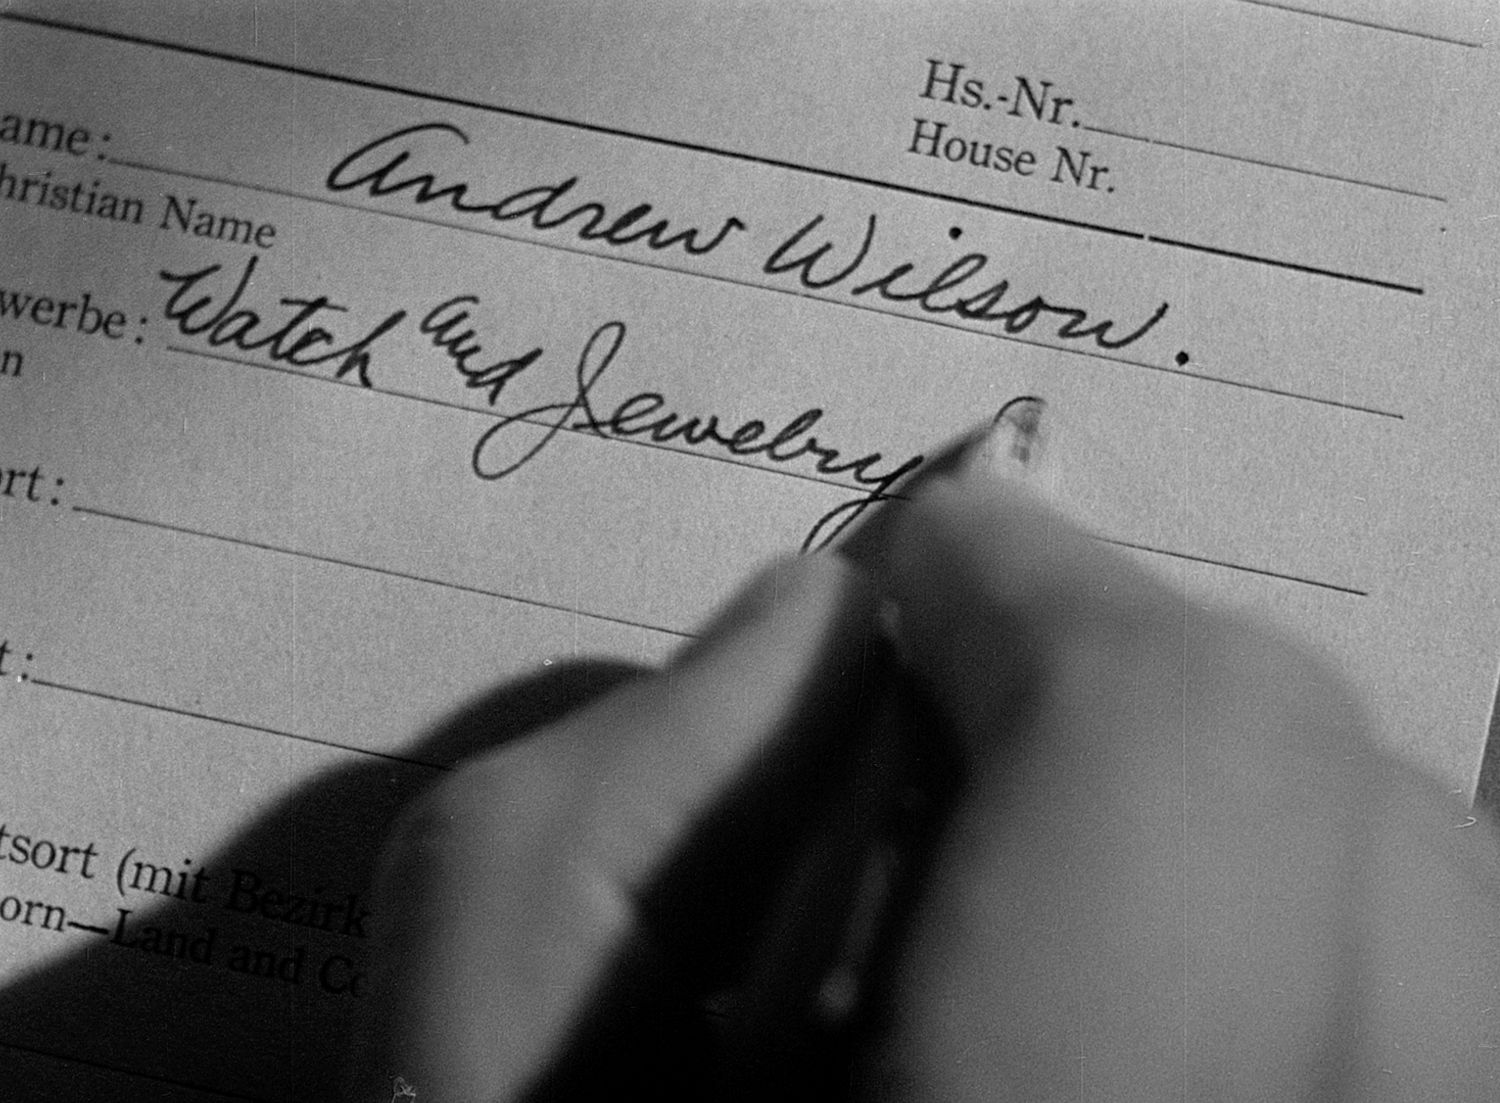 Hs.-Nr.
House Nr.
ame: Andrew Wilson.
hristian Name
werbe: Watch and Jewelry
n
ort:
t:
tsort (mit Bezirk
orn—Land and Co